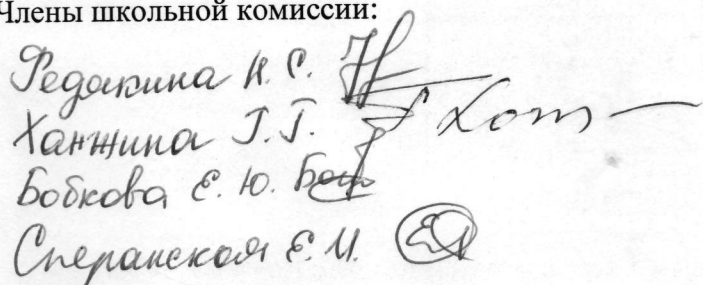 Члены школьной комиссии:
Федякина Н. С.
Ханжина Г. Г.
Бобкова Е. Ю.
Сперанская Е. И.